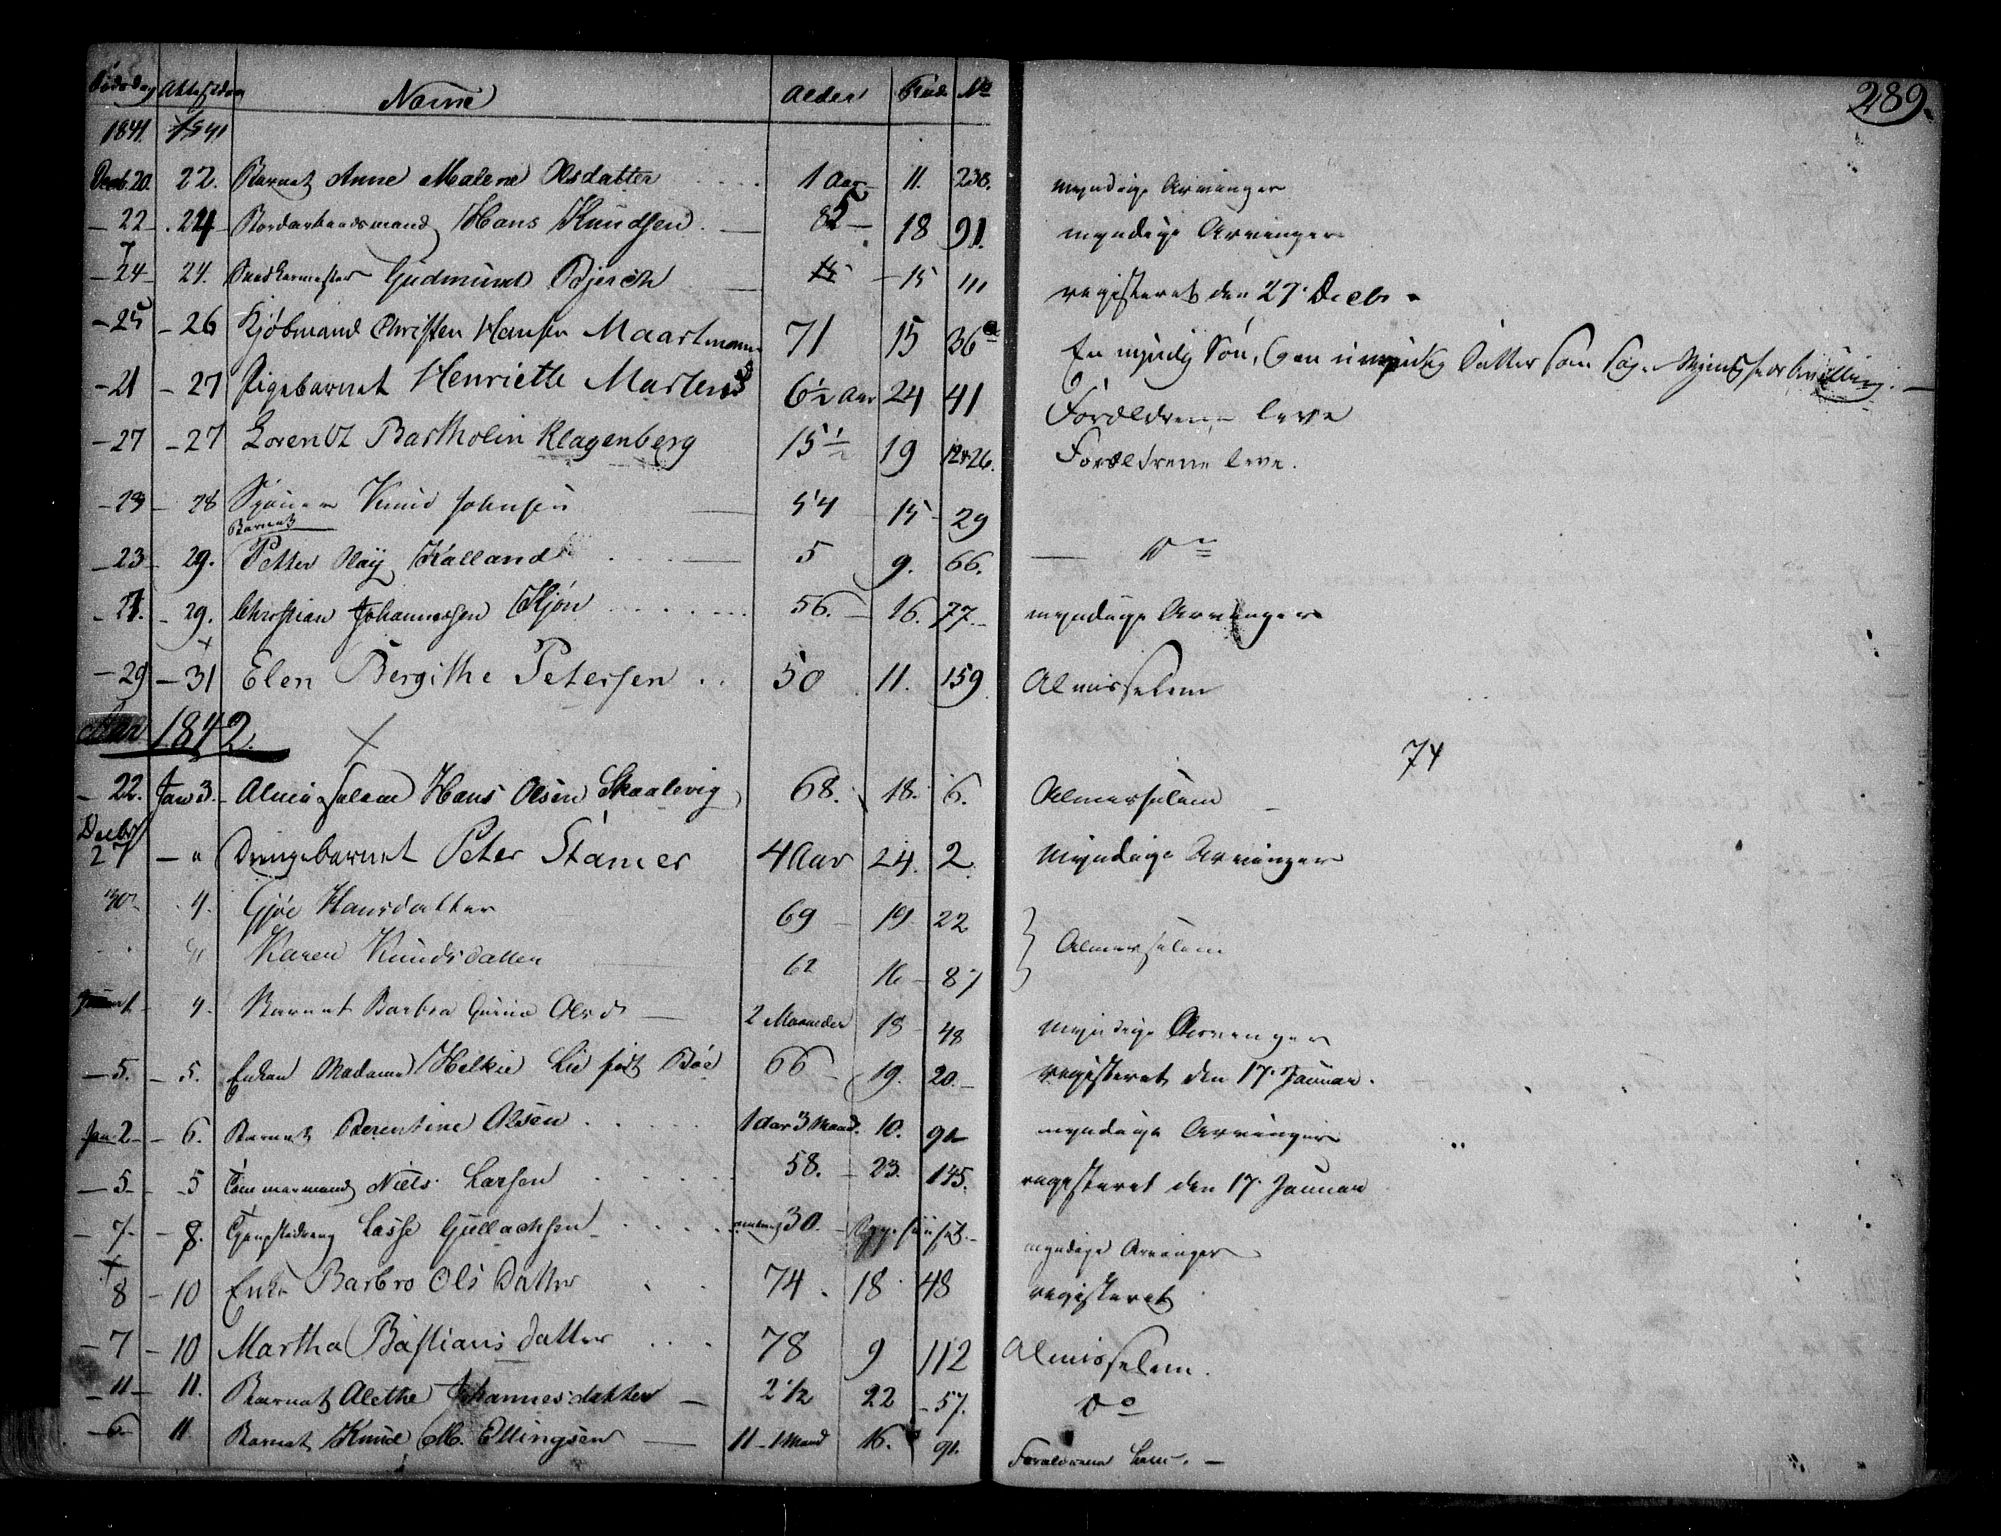 289.
Dødsdag Attestdag Navne Alder Rode No
1841. 1841
Decb. 20. 22. Barnet Anne Malene Olsdatter 1 Aar 11. 238. myndige Arvinger
22 24 Hans Knudsen 85 18 91. myndige Arvinger
24 24. Gudmund 15 111 registeret den 27. Decbr
25 26 Kjøbmand Christen Hansen Maartmann 71 15 36a En myndig Søn, og en umyndig Datter som
21 27 Pigebarnet Henriette Martens 6½ Aar 24 41 Forældrene leve
27 27 Lorentz Bartholin Klagenberg 15½ 19 12&26. Forældrene leve.
23 28 Knud Johnsen 54 15 29
Barnet
23 29. Petter Kalland 5 9. 66. Do
29. Christian Johannesen Hjøn 56. 16. 77. myndige Arvinger
29 31 Elen Bergithe Petersen 50 11. 159 Almisselem
Aar 1842.
74
22. Jan 3. Almisselem Hans Olsen Skaalevig 68. 18. 6. Almisselem
Decbr
27 " Drengebarnet Peter Stamer 4 Aar 24. 2. Myndige Arvinger
30 4. Gjøe Hansdatter 69 19 22
Karen Knudsdatter 62 16 87 } Almisselem
4. Barnet Barbra Gurine Olsd 2 Maaneder 18 48 Myndige Arvinger
5. 5. Enken Madame Helkie Lie født Bøe 66 19. 20. registeret den 17. Januar.
Jan 2 6. Barnet Berentine Olsen 1 Aar 3 Maand. 10. 91 myndige Arvinger
5 5 Tømmermand Niels Larsen 58. 23. 145. registeret den 17. Januar
7 8. Tjenestedreng Lasse Gullachsen 30. myndige Arvinger
8 10 Enke Barbro Olsdatter 74. 18 48 registeret
7 10 Martha Bastiansdatter 78 9 112 Almisselem.
11 11. Barnet Alethe Johannesdatter 2½ 22 57. Do
6 11 Barnet Knud M. Ellingsen 11 Maand 16. 91. Forældrene leve.